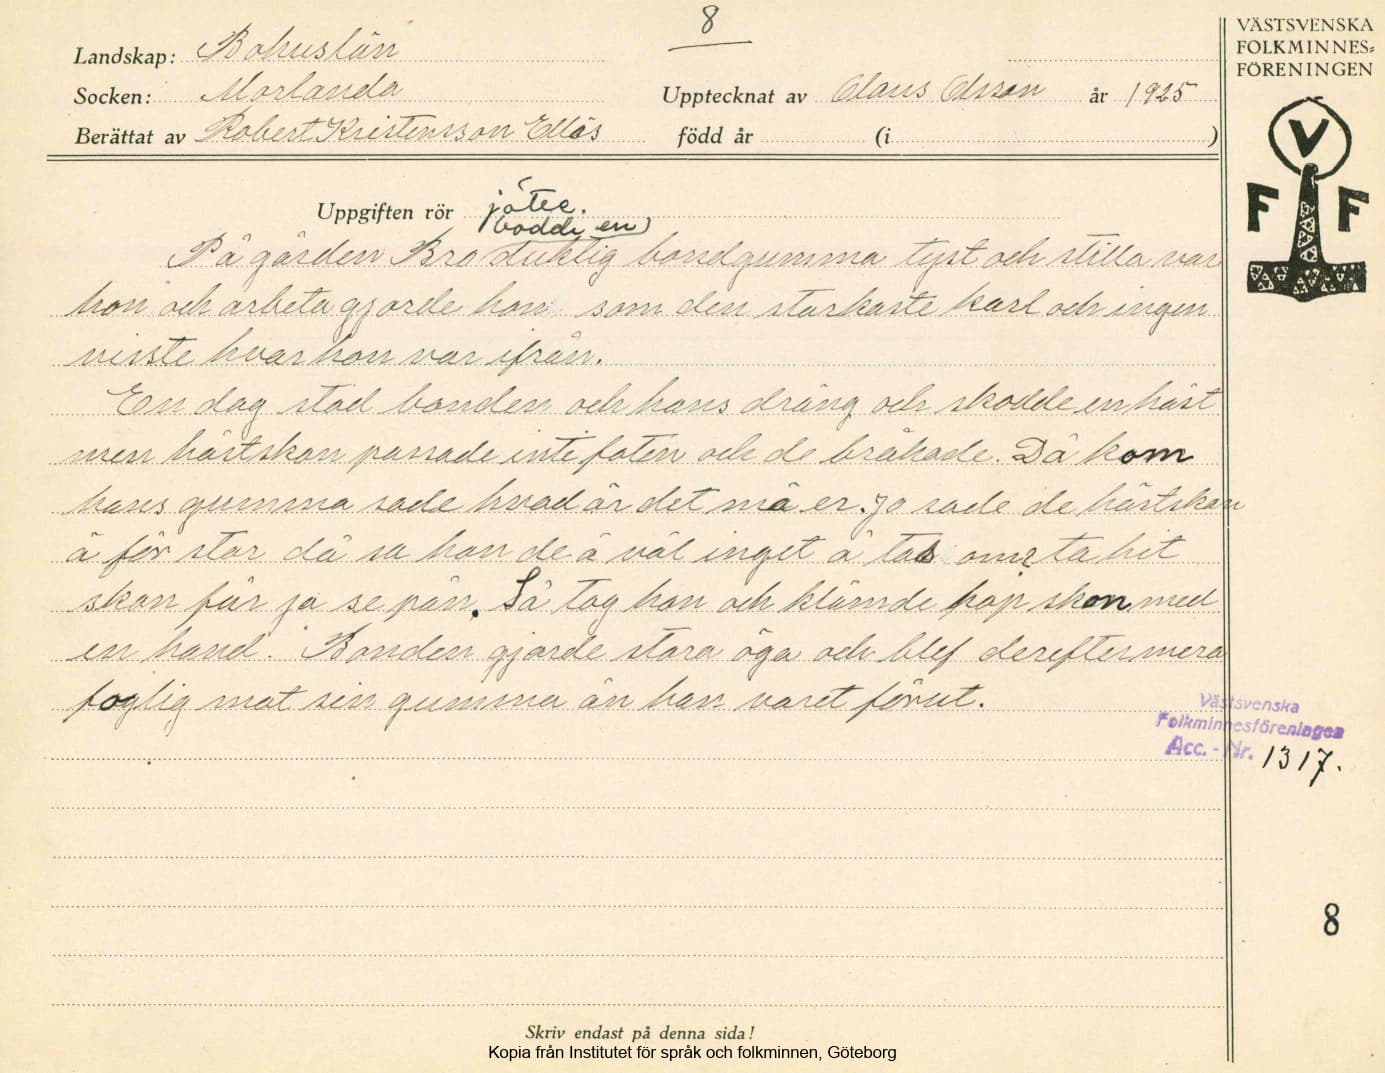 8
VÄSTSVENSKA
FOLKMINNES=
FÖRENINGEN
Landskap: Bohuslän
Socken: Morlanda
Upptecknat av Olaus Olsson år 1925
Berättat av Robert Kristensson Ellös född år (i )
V
F F
Uppgiften rör jätte.
bodde en
På gården Bro duktig bondgumma tyst och stilla var
hon och arbeta gjorde hon som den starkaste karl och ingen
visste hvar hon var ifrån.
En dag stod bonden och hans dräng och skodde en häst
men hästskon passade inte foten och de bråkade. Då kom
hans gumma sade hvad är det må er. Jo sade de hästskon
ä för stor då sa hon de ä väl inget å tas om, ta hit
skon får ja se pån. Så tog hon och klämde hop skon med
en hand. Bonden gjorde stora öga och blef derefter mera
foglig mot sin gumma än han varet förut.
Västsvenska
Folkminnesföreningen
Acc. - Nr. 1317.
8
Skriv endast på denna sida!
Kopia från Institutet för språk och folkminnen, Göteborg